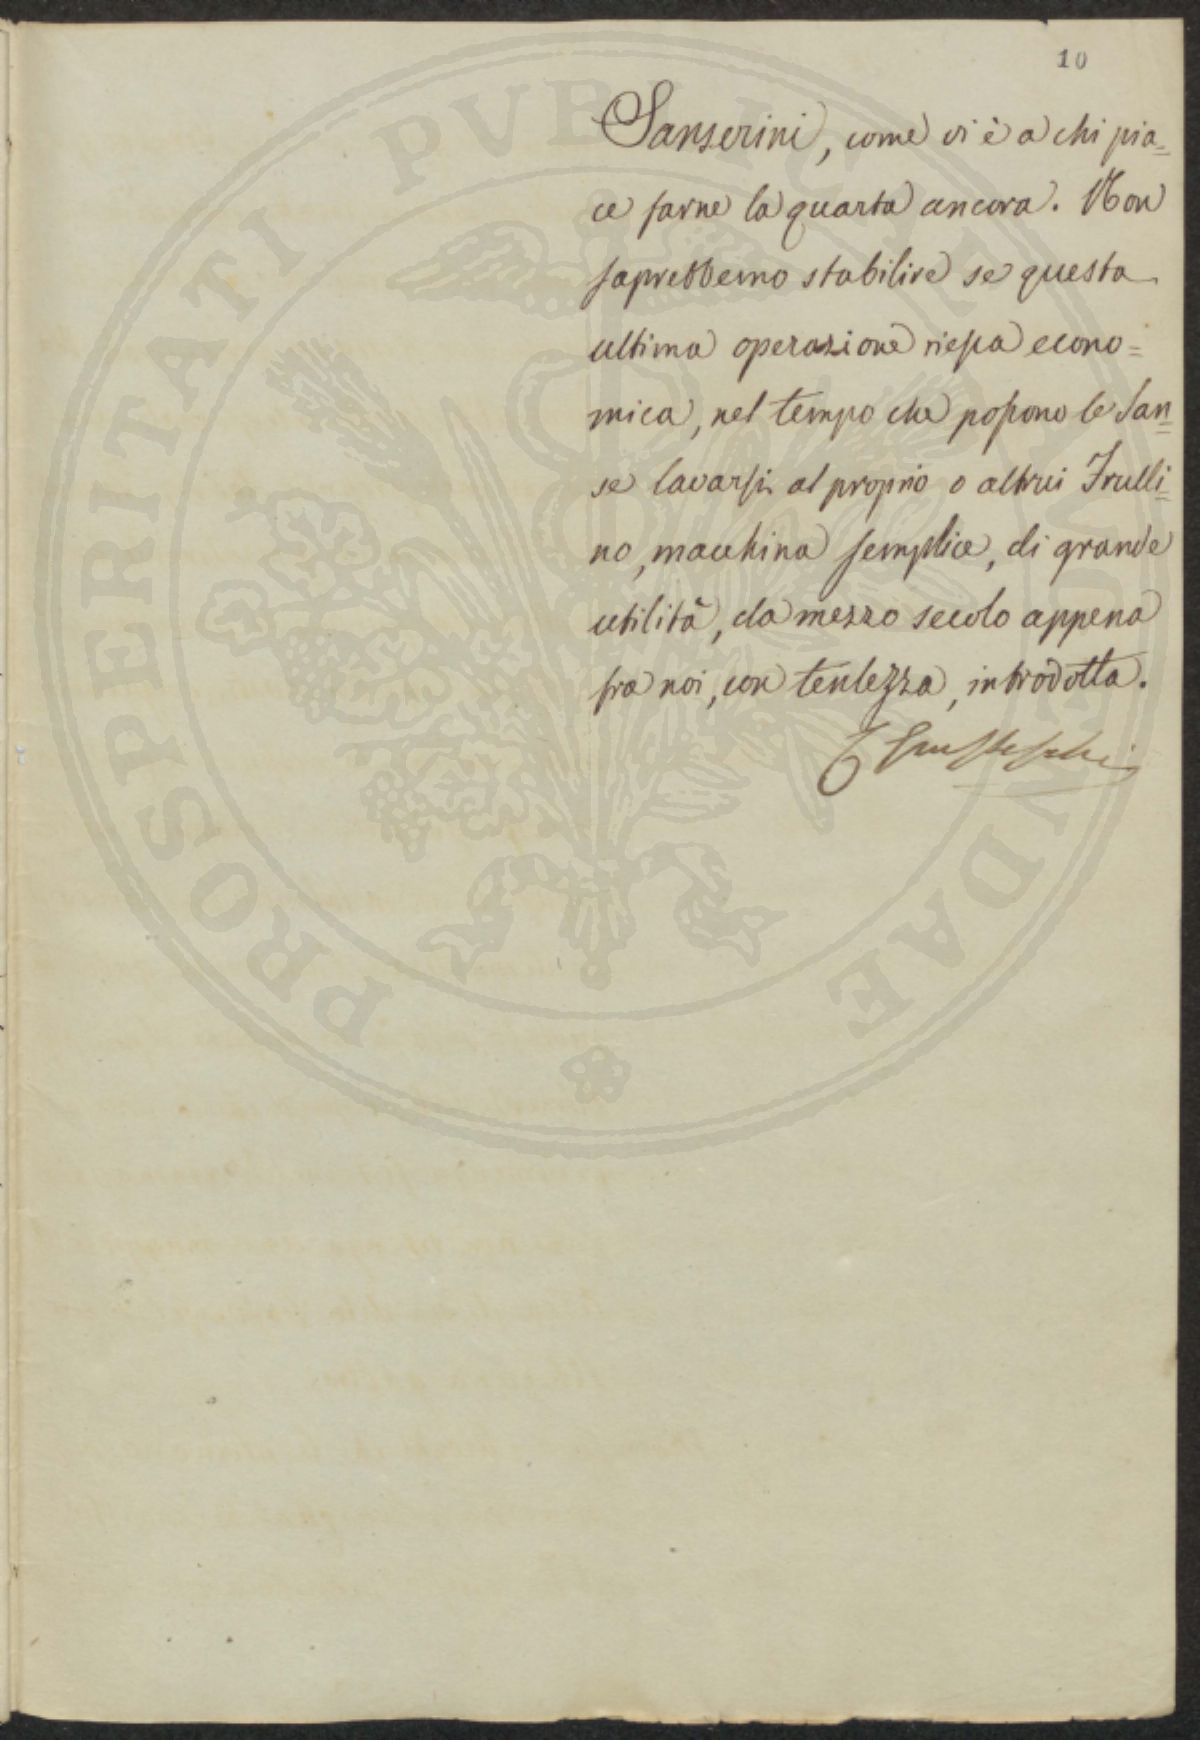 10
Sanserini, come vi è a chi pia=
ce farne la quarta ancora. Non
saprebbemo stabilire se questa
ultima operazione riesca econo=
mica, nel tempo che possono le San=
se lavarsi al proprio o altrui Frulli=
no, macchina semplice, di grande
utilità, da mezzo secolo appena
fra noi, con lentezza, introdotta.
PROSPERITATI PVBLICAE AVGENDAE